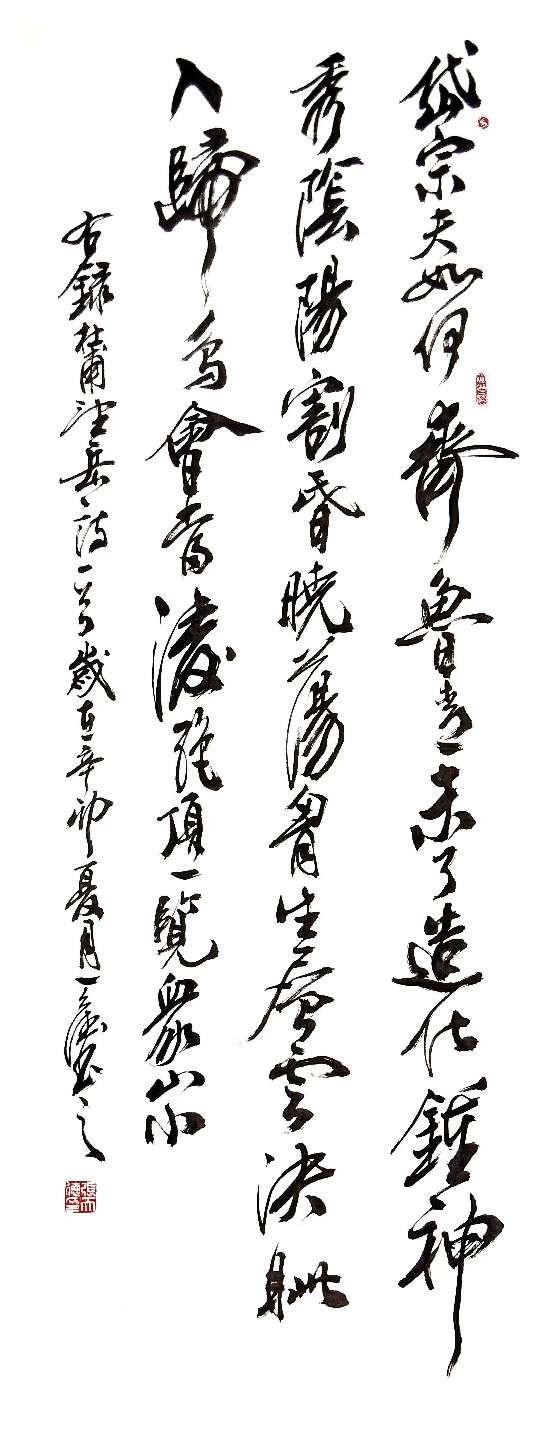 岱宗夫如何齊魯青未了造化鍾神
秀陰陽割昏曉蕩胷生層雲決眦
入歸鳥會當淩絕頂一覽眾山小
右錄杜甫望岳詩一首歲在辛卯夏月